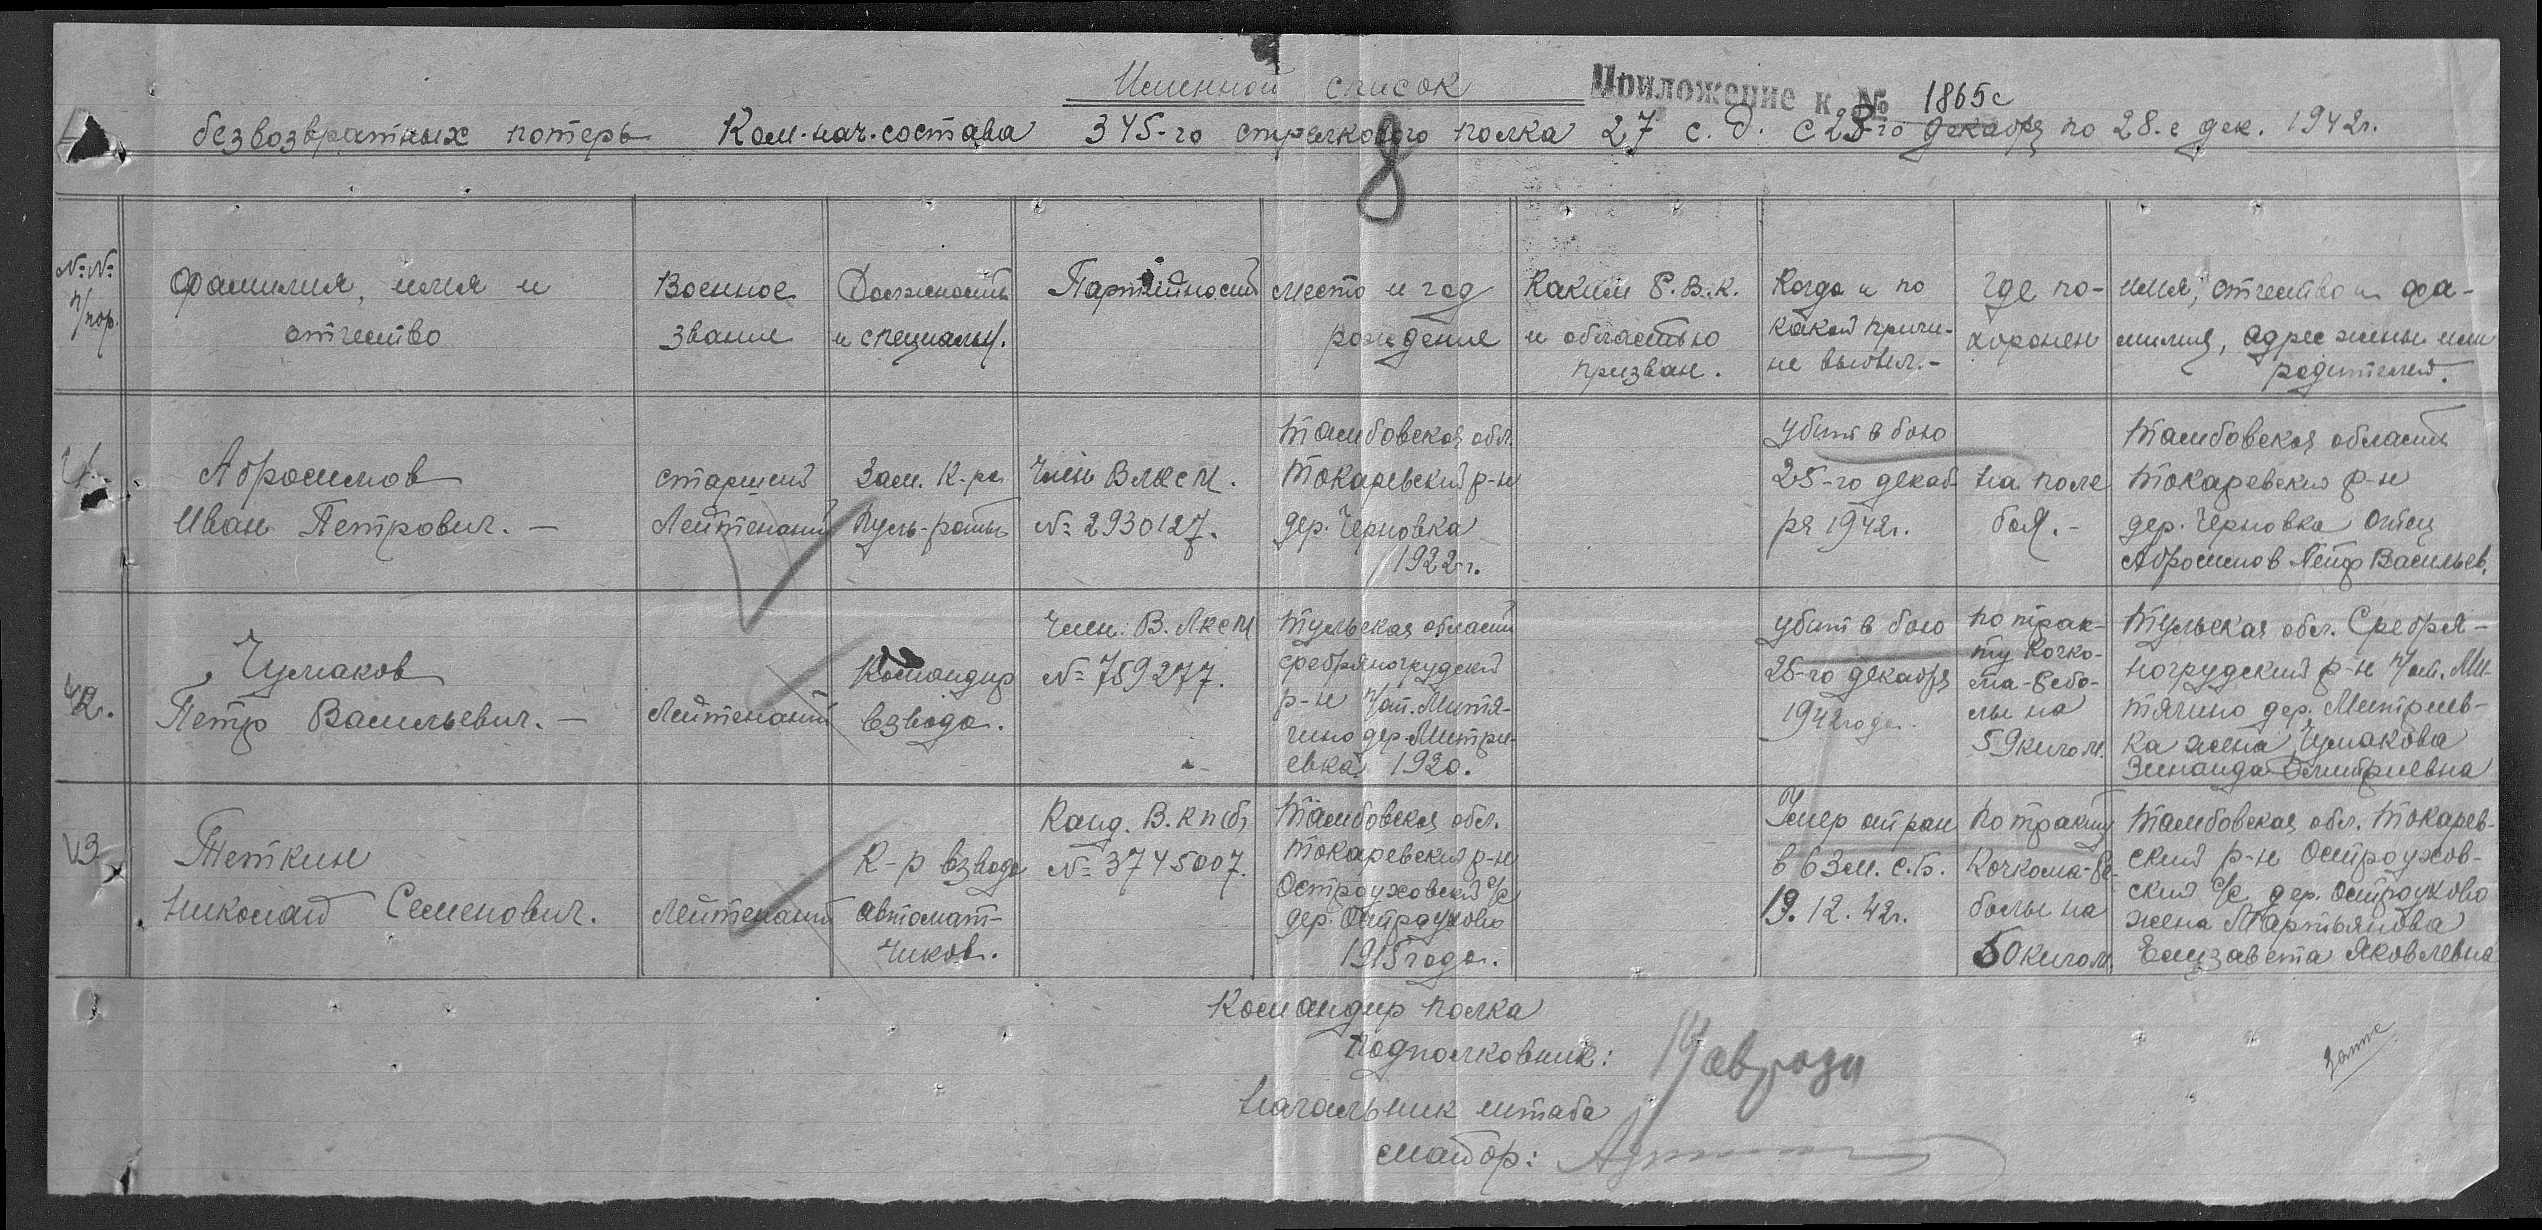 Именной список
Приложение к № 1865с
безвозвратных потерь Ком.-нач.-состава 345-го стрелкового полка 27 с. д. с 23-го декабря по 28-е дек. 1942г.
8
№№ п/пор.
Фамилия, имя и
отчество
Военное
звание
Должность
и специальн.
Партийность
место и год
рождения
Каким Р.В.К.
и областью
призван.
Когда и по
какой причи-
не выбыл.-
Где по-
хоронен
имя, отчество и фа-
милия, адрес жены или
родителей.
1.
Абросимов
Иван Петрович. —
старший
Лейтенант
Зам. К-ра
пуль-роты
Член ВЛКСМ.
№ 2930127.
Тамбовская обл.
Токаревский р-н
дер. Черновка
1922 г.
убит в бою
25-го декаб
ря 1942г.
на поле
боя.-
Тамбовская область
Токаревский р-н
дер. Черновка отец
Абросимов Петр Васильев.
2.
Чумаков
Петр Васильевич. —
Лейтенант
Командир
взвода.
Член. В.ЛКСМ
№ 759277.
Тульская область
сребряногрудский
р-н п/от. Митя-
гино дер. Митри-
евка 1920.
убит в бою
25-го декабря
1942 года.
по трак-
ту Кочко-
ма-Ребо-
лы на
59 килом.
Тульская обл. Сребря-
ногрудский р-н п/от. Ми-
тягино дер. Митриев-
ка жена Чумакова
Зинаида Дмитриевна
3
Теткин
Николай Семенович.
Лейтенант
К-р взвода
автомат-
чиков.
Канд. В.КП(б)
№ 3745007.
Тамбовская обл.
Токаревский р-н
Остроуховский с/с
дер. Остроухово
1915 года.
Умер от ран
в 63 м. с. б.
19. 12. 42г.
По тракту
Кочкома-Ре-
болы на
50 килом.
Тамбовская обл. Токарев-
ский р-н Остроухов-
ский с/с дер. Остроухово
жена Мартьянова
Елизавета Яковлевна
Командир полка
подполковник:
Начальник штаба
майор: